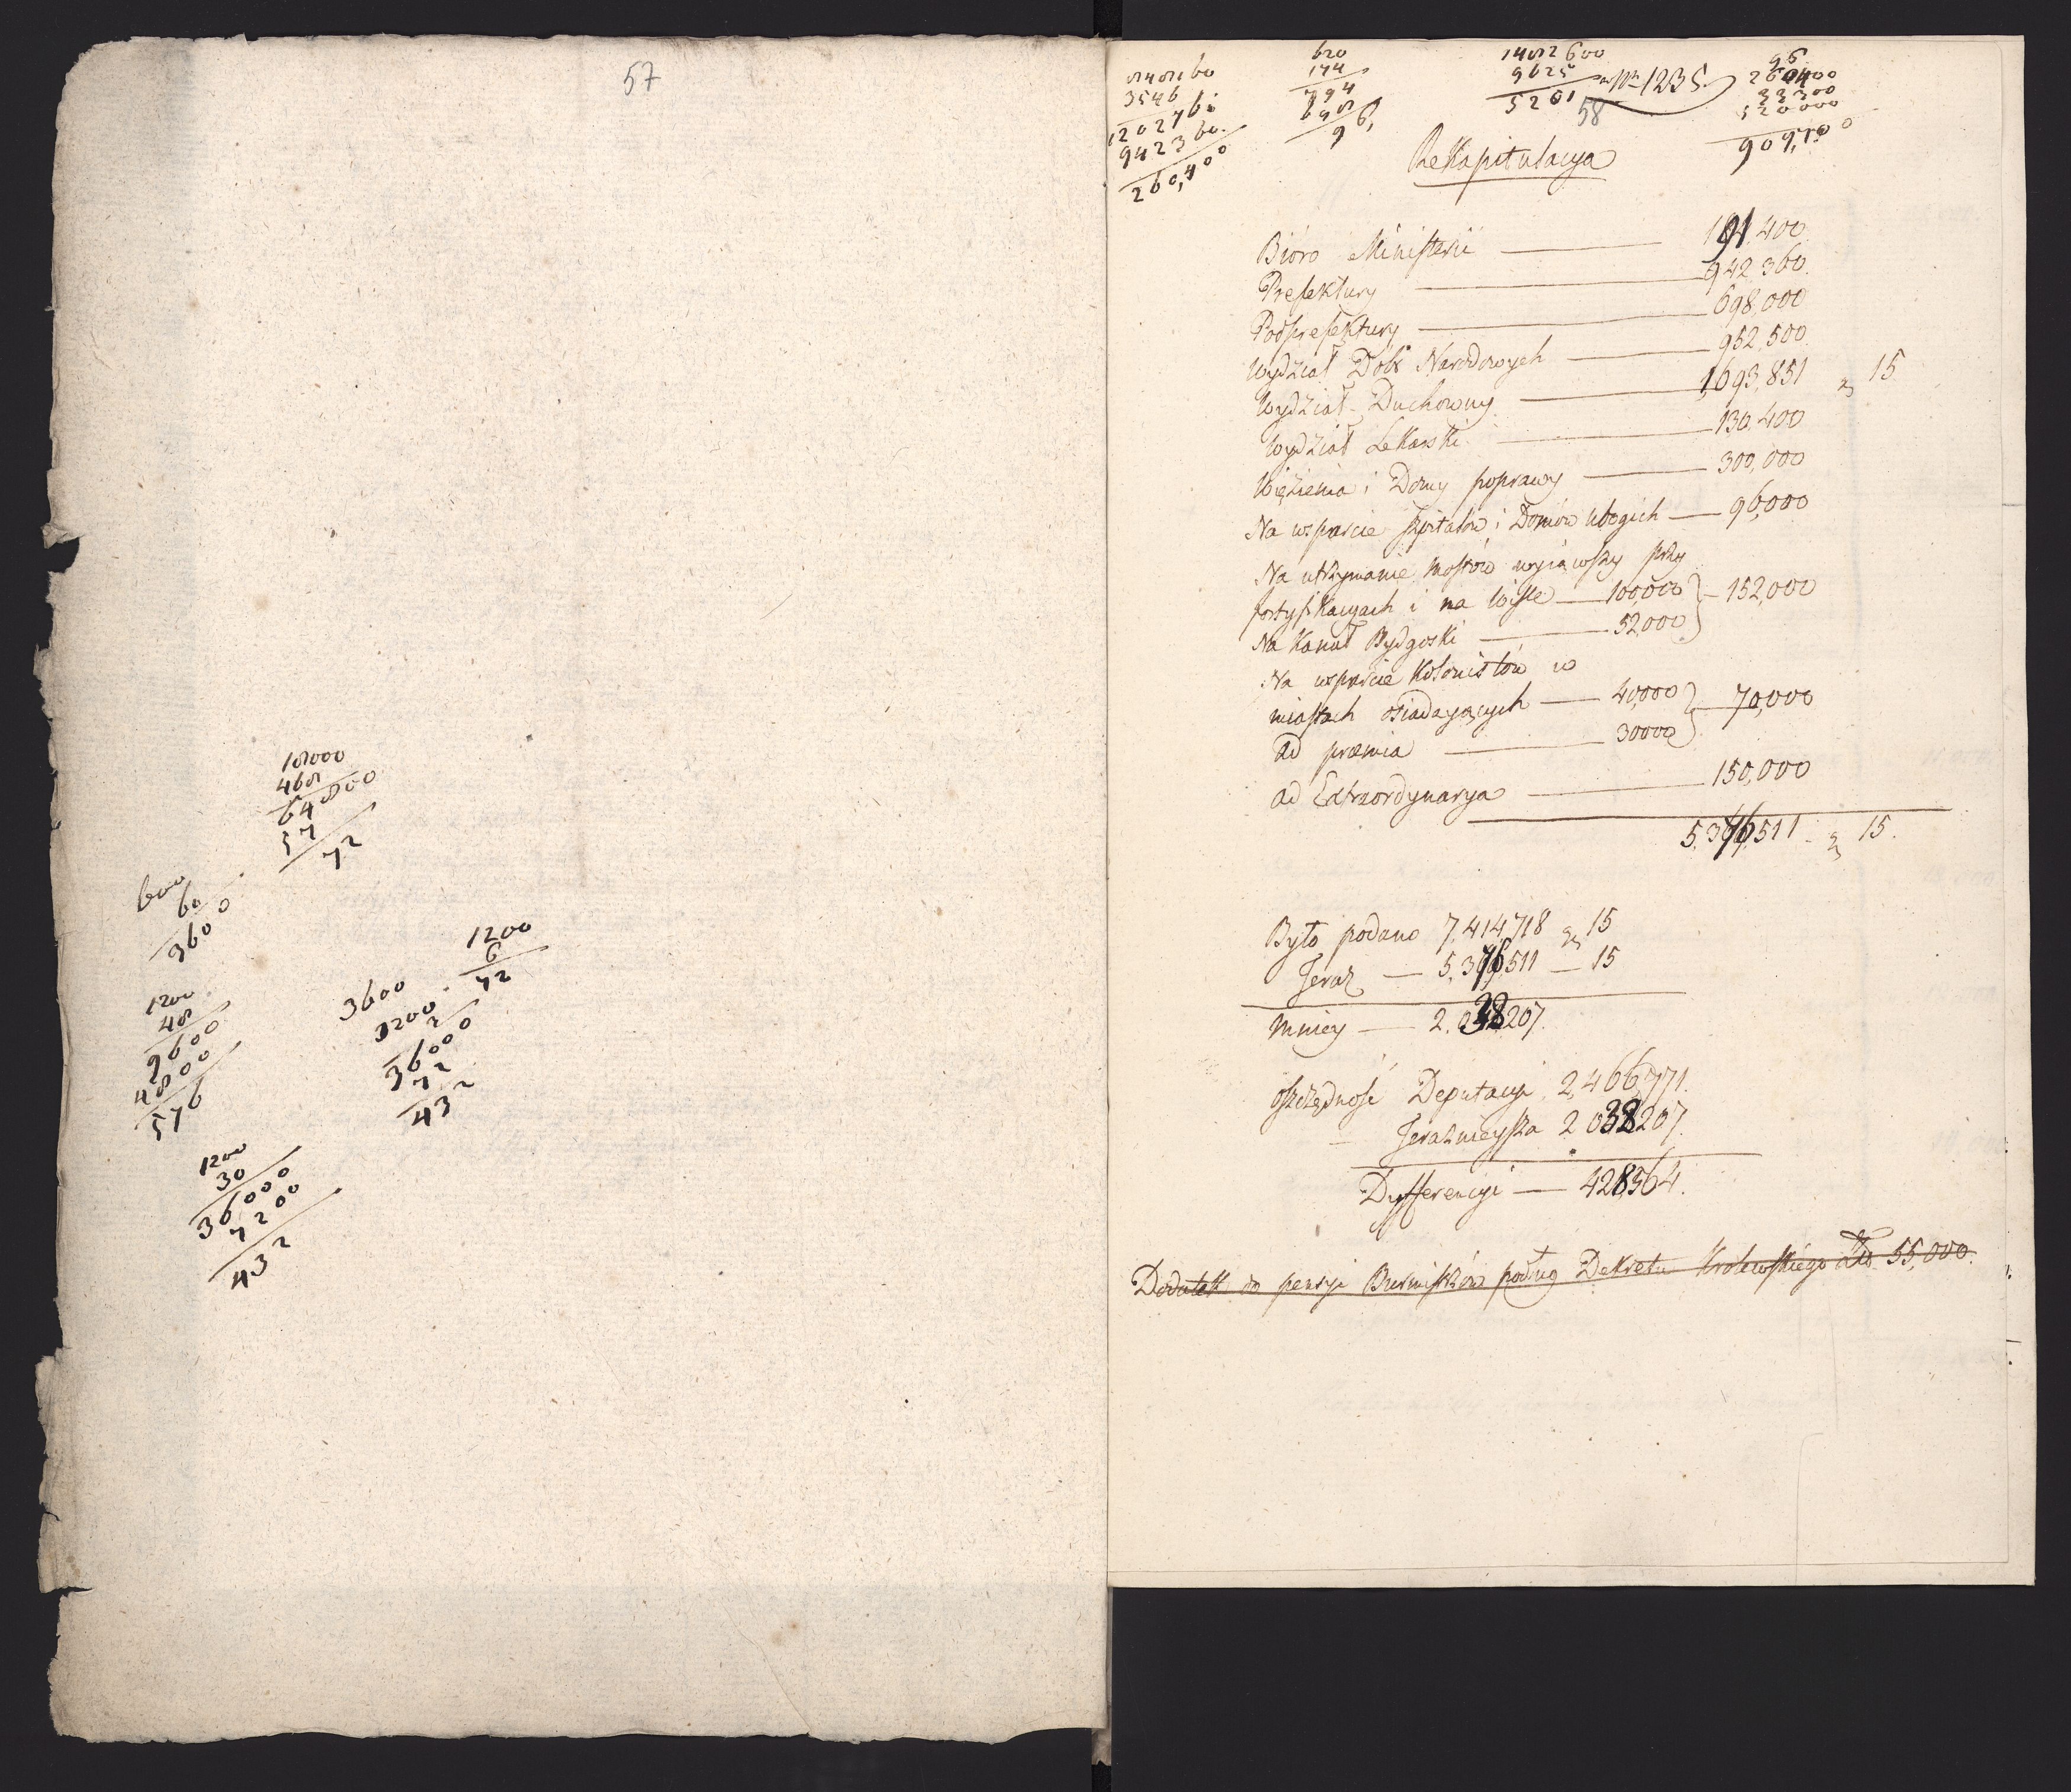 57
18000
468
64800
57
72
600
60
360 0
1200
48
9600
4800
576
3600
1200
6
72
3600
72
432
1200
30
36000
7200
432
3546
942360
260,400
620
174
794
698
96,
1482600
9625
5201
1235.
58
96
260400
33300
520000
909,700
Rekapitulacya
Bióro Ministerii — 191,400
Prefektury — 942,360
Podprefektury — 698,000
Wydział Dóbr Narodowych — 952,500
Wydział Duchowny — 1,693,851 15
Wydział Lekarski — 130,400
Więzienia i Domy poprawy — 300,000
Na wsparcie szpitalów i Domów Ubogich — 96,000
Na utrzymanie mostów wyiąwszy przy
fortyfikacyach i na Wiśle — 100,000 } — 152,000
Na Kanał Bydgoski — 52,000
Na wsparcie Kolonistów w
miastach osiadaiących — 40,000 } — 70,000
Ad præmia — 30000
Ad Extraordynarya — 150,000
5,376,511 15.
Było podano 7,414,718 15
Teraz — 5,376,511 — 15
Mniey — 2,038,207.
Oszczędność Deputacyi 2,466,771.
— Teraznieysza 2 038,207.
Dyfferencyi — 428,564.
Dodatek do pensyi Burmistrzów podług Dekretu Krolewskiego 55,000.